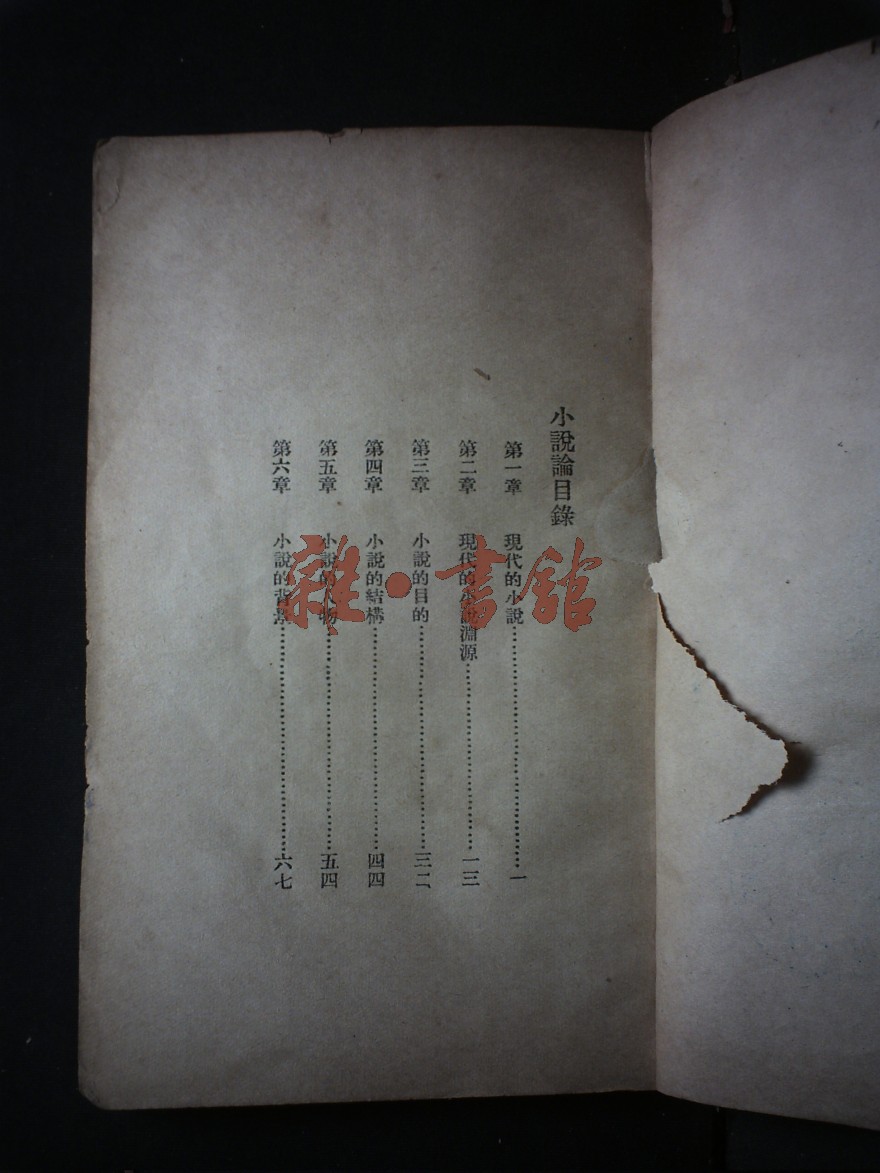 小說論目錄
第一章 現代的小說……一
第二章 現代的小說淵源……一三
第三章 小說的目的……三二
第四章 小說的結構……四四
第五章 小說的人物……五四
第六章 小說的背景……六七
雜·書館